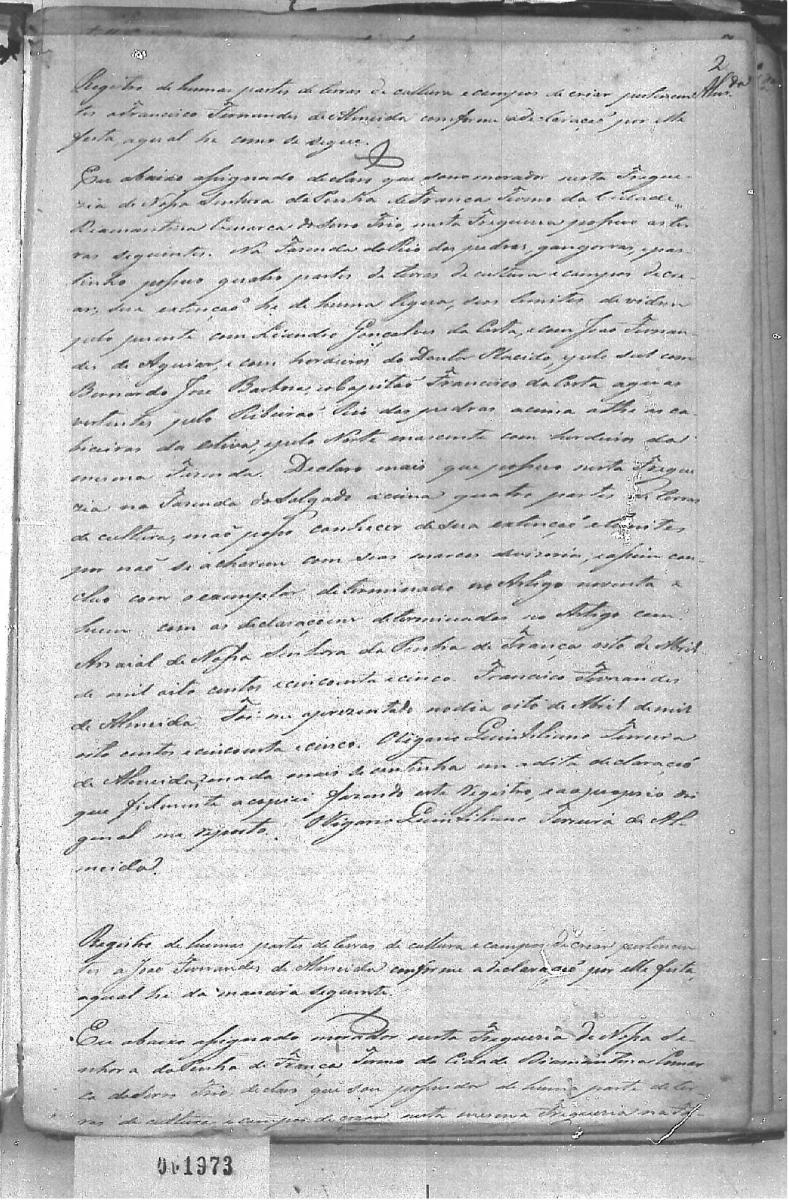 2
Registro de humas partes de terras de cultura e campos de criar pertencen
tes a Francisco Fernandes de Almeida conforme a declaração por elle
festa, a qual he como se segue.
Eu abaixo assignado declaro que sou morador nesta Fregue-
zia de Nossa Senhora da Penha de França Termo da Cidade
Diamantina Comarca do Serro Frio, nesta Freguezia possuo as ter
ras seguintes. Na Fazenda do Rio das pedras, gangorras, e pas-
tinho possuo quatro partes de terras de cultura e campos de cri-
ar, sua extenção he de huma legoa, seos limites devidem
pelo puente com Leandro Gonçalves da Costa, e com João Fernan-
des de Aguiar, e com herdeiros do Doutor Placido, e pelo sul com
Bernardo Jose Barbosa, e o Capitão Francisco da Costa aguas
vertentes pelo Ribeirão Rio das pedras acima athe as ca-
biceiras da estiva, e pelo Norte e nascente com herdeiros da
mesma Fazenda. Declaro mais que possuo nesta Fregue
zia na Fazenda do Salgado acima quatro partes de terras
de cultura, e não posso conhecer de sua extenção e limites
por não se acharem com seos marcos devizorios, e assim con-
cluo com o exemplar determinado no Artigo noventa e
hum com as declaraçoens determinadas no Artigo cem.
Arraial de Nossa Senhora da Penha de França oito de Abril
de mil oito centos e cincoenta e cinco. Francisco Fernandes
de Almeida. Foi me aprezentado no dia oito de Abril de mil
oito centos e cincoenta e cinco. O Vigario Quintiliano Ferreira
de Almeida, e nada mais se continha em a dita declaração
que fielmente a copiei fazendo este registro, e ao proprio ori
ginal me reporto. O Vigario Quintiliano Ferreira de Al-
meida.
Registro de humas partes de terras de cultura e campos de crear pertencen
tes a João Fernandes de Almeida conforme a declaração por elle festa,
a qual he da maneira seguinte.
Eu abaixo assignado morador nesta Freguezia de Nossa Se-
nhora da Penha de França Termo da Cidade Diamantina Comar
ca do Serro Frio, declaro que sou possuidor de huma parte de ter
ras de cultura, e campos de crear nesta mesma Freguezia na Fa-
1973